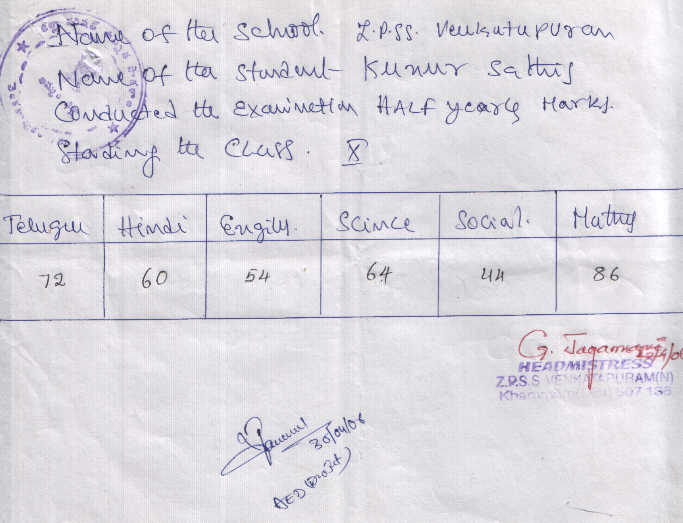 Name of the School. Z.P.SS. Venkatapuran
Name of the Student Kunur Sathis
Conducted the Examinetion HALF yearly Marks.
Standing the Class. X
Telugu Hindi Englis. Science Social. Maths
72 60 54 64 44 86
G. Jagamani
HEADMISTRESS
Z.P.S.S VENKATAPURAM(N)
507 136
30/04/06
AED